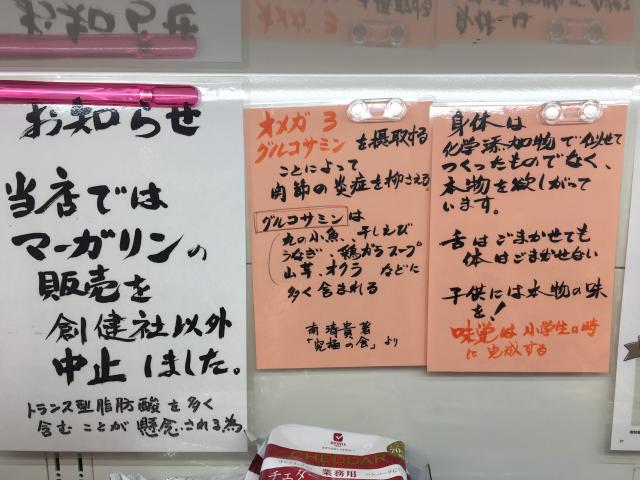 お知らせ
当店では
マーガリンの
販売を
創健社以外
中止しました。
トランス型脂肪酸を多く
含むことが懸念される為
オメガ3
グルコサミンを摂取する
ことによって
関節の炎症を抑さえる
グルコサミンは
丸の小魚、干しえび
うなぎ、鶏がらスープ
山芋、オクラなどに
多く含まれる
南清貴著
「究極の食」より
身体は
化学添加物で似せて
つくったものでなく、
本物を欲しがって
います。
舌はごまかせても
体はごまかせない
子供には本物の味
を!
味覚は小学生の時
に完成する
CHEDDAR
チェダー
業務用